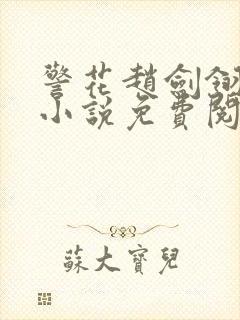 警花趙劍翎
小說免費閱
蘇大寶兒